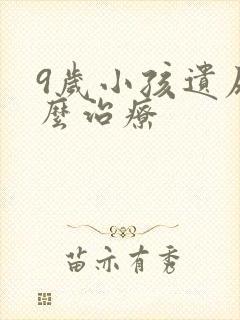 9歲小孩遺
麼治療
苗亦有秀